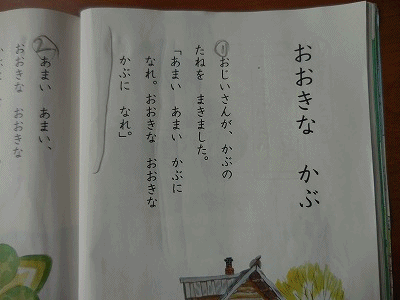 おおきな　かぶ
①おじいさんが、かぶの
たねを　まきました。
「あまい　あまい　かぶに
なれ。おおきな　おおきな
かぶに　なれ。」
②あまい　あまい、
おおきな　おおきな